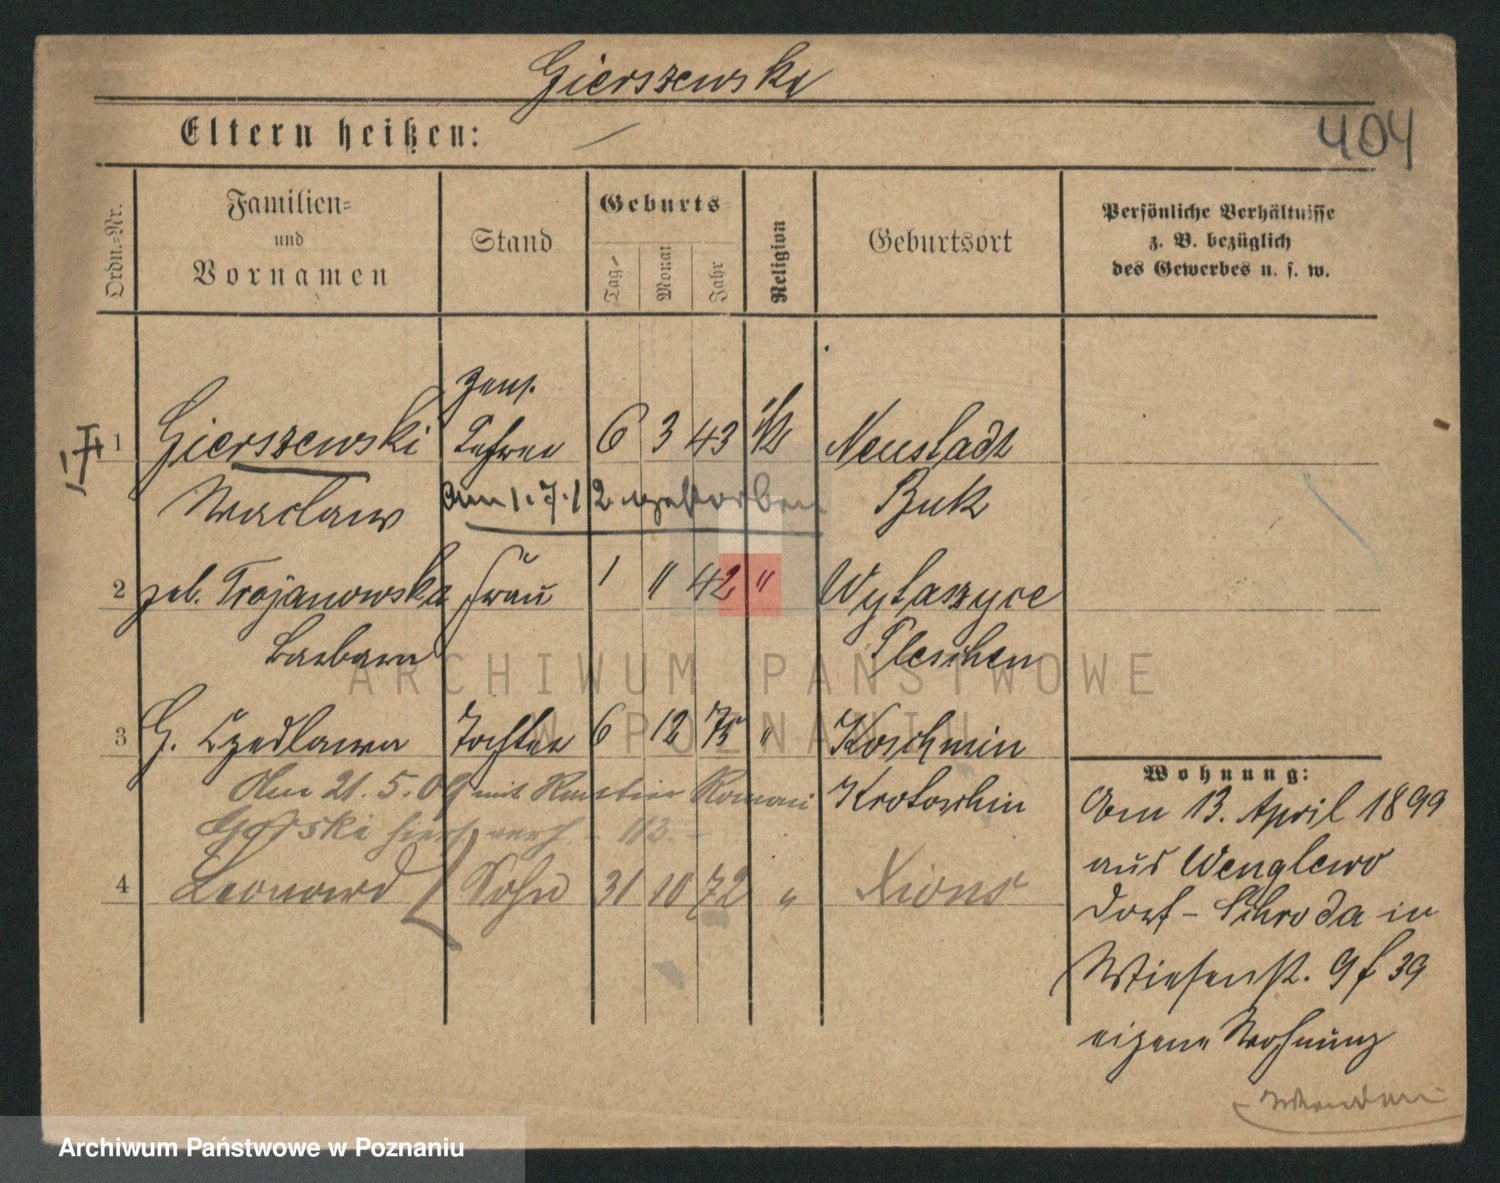 Gierszewski
Eltern heißen:
404
Ordn.=Nr.
Familien=
und
Vornamen
Stand
Geburts
Tag
Monat
Jahr
Religion
Geburtsort
Persönliche Verhältnisse
z. B. bezüglich
des Gewerbes u. s. w.
pens.
1 Gierszewski Lehrer 6 3 43 Neustadt
Waclaw am 1.7.12 gestorben Buk
2 geb. Trojanowska Frau 1 " 42 " Wytaszyce
Barbara Pleschen
3 G. Czeslawa Tochter 6 12 75 " Koschmin
Am 21.5.09 mit Roman Krotoschin
Gorski hier verh. 113.
4 Leonard Sohn 31 10 72 " Xions
Wohnung:
Am 13. April 1899
aus Wenglewo
Dorf - Schroda in
Wiesenst. 9 f 39
eigene Wohnung
ARCHIWUM PAŃSTWOWE
W POZNANIU
Archiwum Państwowe w Poznaniu